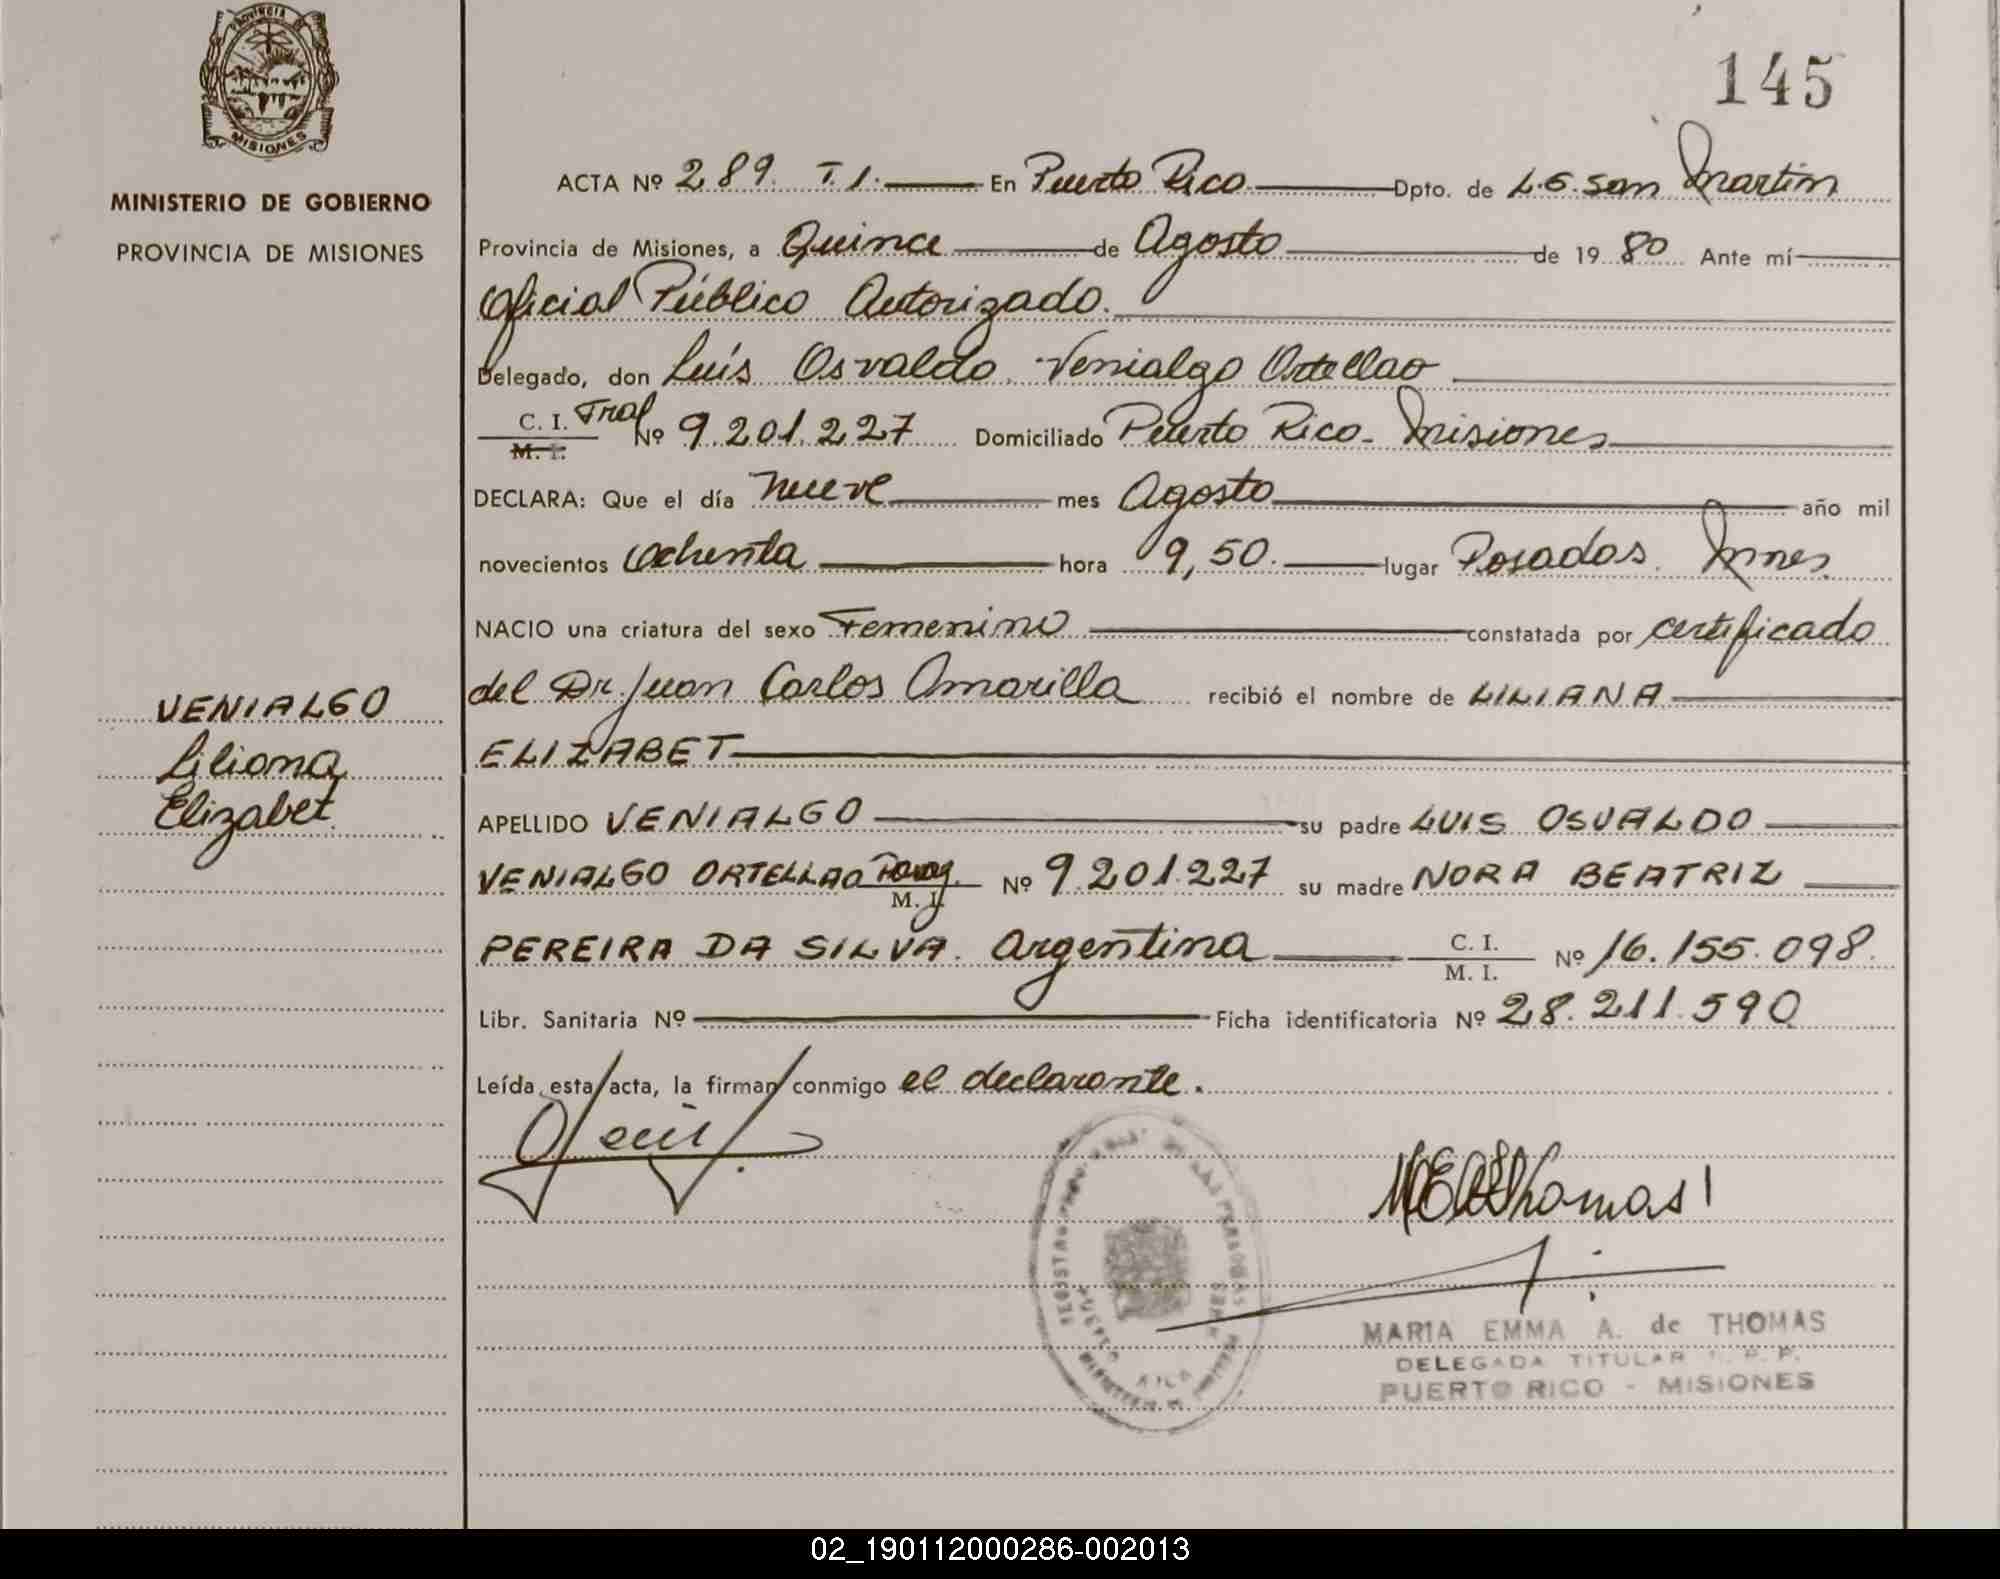 PROVINCIA DE
MISIONES
MINISTERIO DE GOBIERNO
PROVINCIA DE MISIONES
VENIALGO
Liliana
Elizabet
145
ACTA Nº 289. T.1. En Puerto Rico Dpto. de L.G. San Martin
Provincia de Misiones, a Quince de Agosto de 1980 Ante mí
Oficial Público Autorizado.
Delegado, don Luís Osvaldo Venialgo Ortellao
C. I. Nº 9.201.227 Domiciliado Puerto Rico - Misiones
M. I.
DECLARA: Que el día nueve mes Agosto año mil
novecientos ochenta hora 9,50. lugar Posadas. Mnes.
NACIO una criatura del sexo Femenino constatada por certificado
del Dr. Juan Carlos Amarilla recibió el nombre de LILIANA
ELIZABET
APELLIDO VENIALGO su padre LUIS OSVALDO
VENIALGO ORTELLAO Parag. Nº 9.201.227 su madre NORA BEATRIZ
M. I.
PEREIRA DA SILVA. Argentina C. I. Nº 16.155.098.
M. I.
Libr. Sanitaria Nº Ficha identificatoria Nº 28.211.590
Leída esta acta, la firman conmigo el declarante.
MARIA EMMA A. de THOMAS
DELEGADA TITULAR
PUERTO RICO - MISIONES
02_190112000286-002013